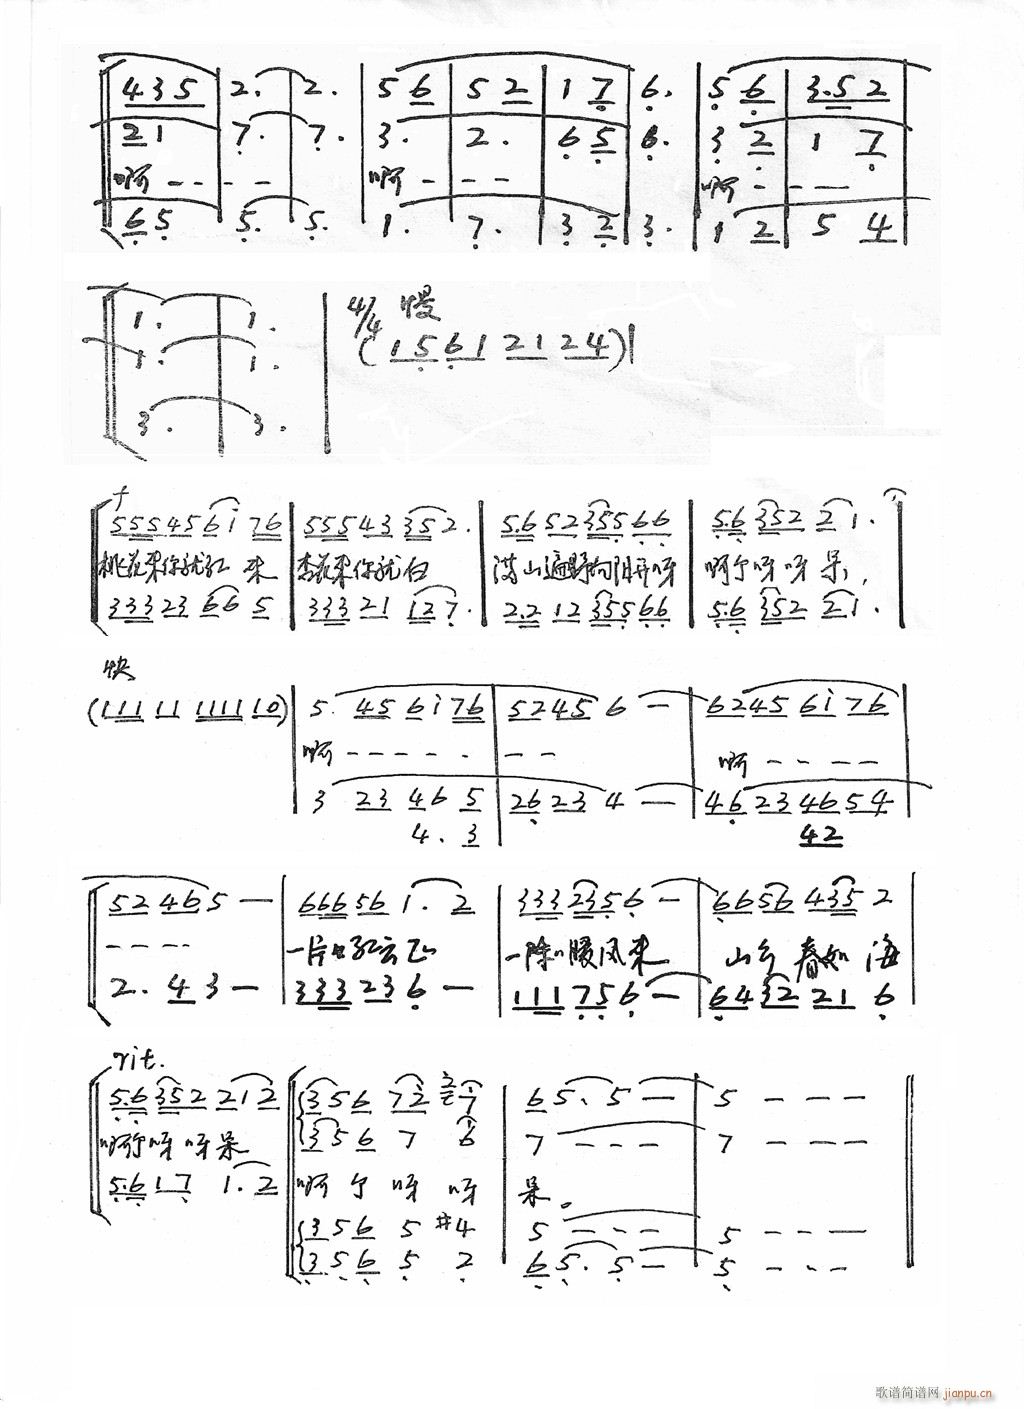 4 3 5 | 2. | 2. | 5 6 | 5 2 | 1 7 | 6. | 5 6 | 3.5 2
2 1 7. | 7. | 3. | 2. | 6 5 | 6. | 3 2 | 1 7
啊 - - - - 啊 - - - 啊 - - -
6 5 5. | 5. | 1. | 7. | 3 2 | 3. | 1 2 | 5 4
1. | 1. | 4/4 慢
1. | 1. (1 5 6 1 2 1 2 4)
3. | 3.
f
5 5 5 4 5 6 i 7 6 | 5 5 5 4 3 3 5 2. | 5.6 5 2 3 5 5 6 6 | 5.6 3 5 2 2 1.
桃花来你就红 来 李花来你就白 满山遍野向阳开呀 啊个呀呀呆,
3 3 3 2 3 6 6 5 | 3 3 3 2 1 1 2 7. | 2.2 1 2 3 5 5 6 6 | 5.6 3 5 2 2 1.
快
(1 1 1 1 1 1 1 1 1 1 0) | 5. 4 5 6 i 7 6 | 5 2 4 5 6 - | 6 2 4 5 6 i 7 6
啊 - - - - - - - 啊 - - - -
3 2 3 4 6 5 | 2 6 2 3 4 - | 4 6 2 3 4 6 5 4
4. 3 4 2
5 2 4 6 5 - | 6 6 6 5 6 1. 2 | 3 3 3 2 3 5 6 - | 6 6 5 6 4 3 5 2
- - - - 一片 红云 一阵 暖风来 山乡 春如 海
2. 4 3 - | 3 3 3 2 3 6 - | 1 1 1 7 5 6 - | 6 4 3 2 2 1 6
rit.
5.6 3 5 2 2 1 2 | 3 5 6 7 2 7 | 6 5. 5 - | 5 - - -
3 5 6 7 6 | 7 - - - | 7 - - -
啊个呀 呀呆 啊 个 呀 呀 呆。
5.6 1 7 1. 2 | 3 5 6 5 #4 | 5 - - - | 5 - - -
3 5 6 5 2 | 6 5. 5 - | 5 - - -
歌谱简谱网 jianpu.cn